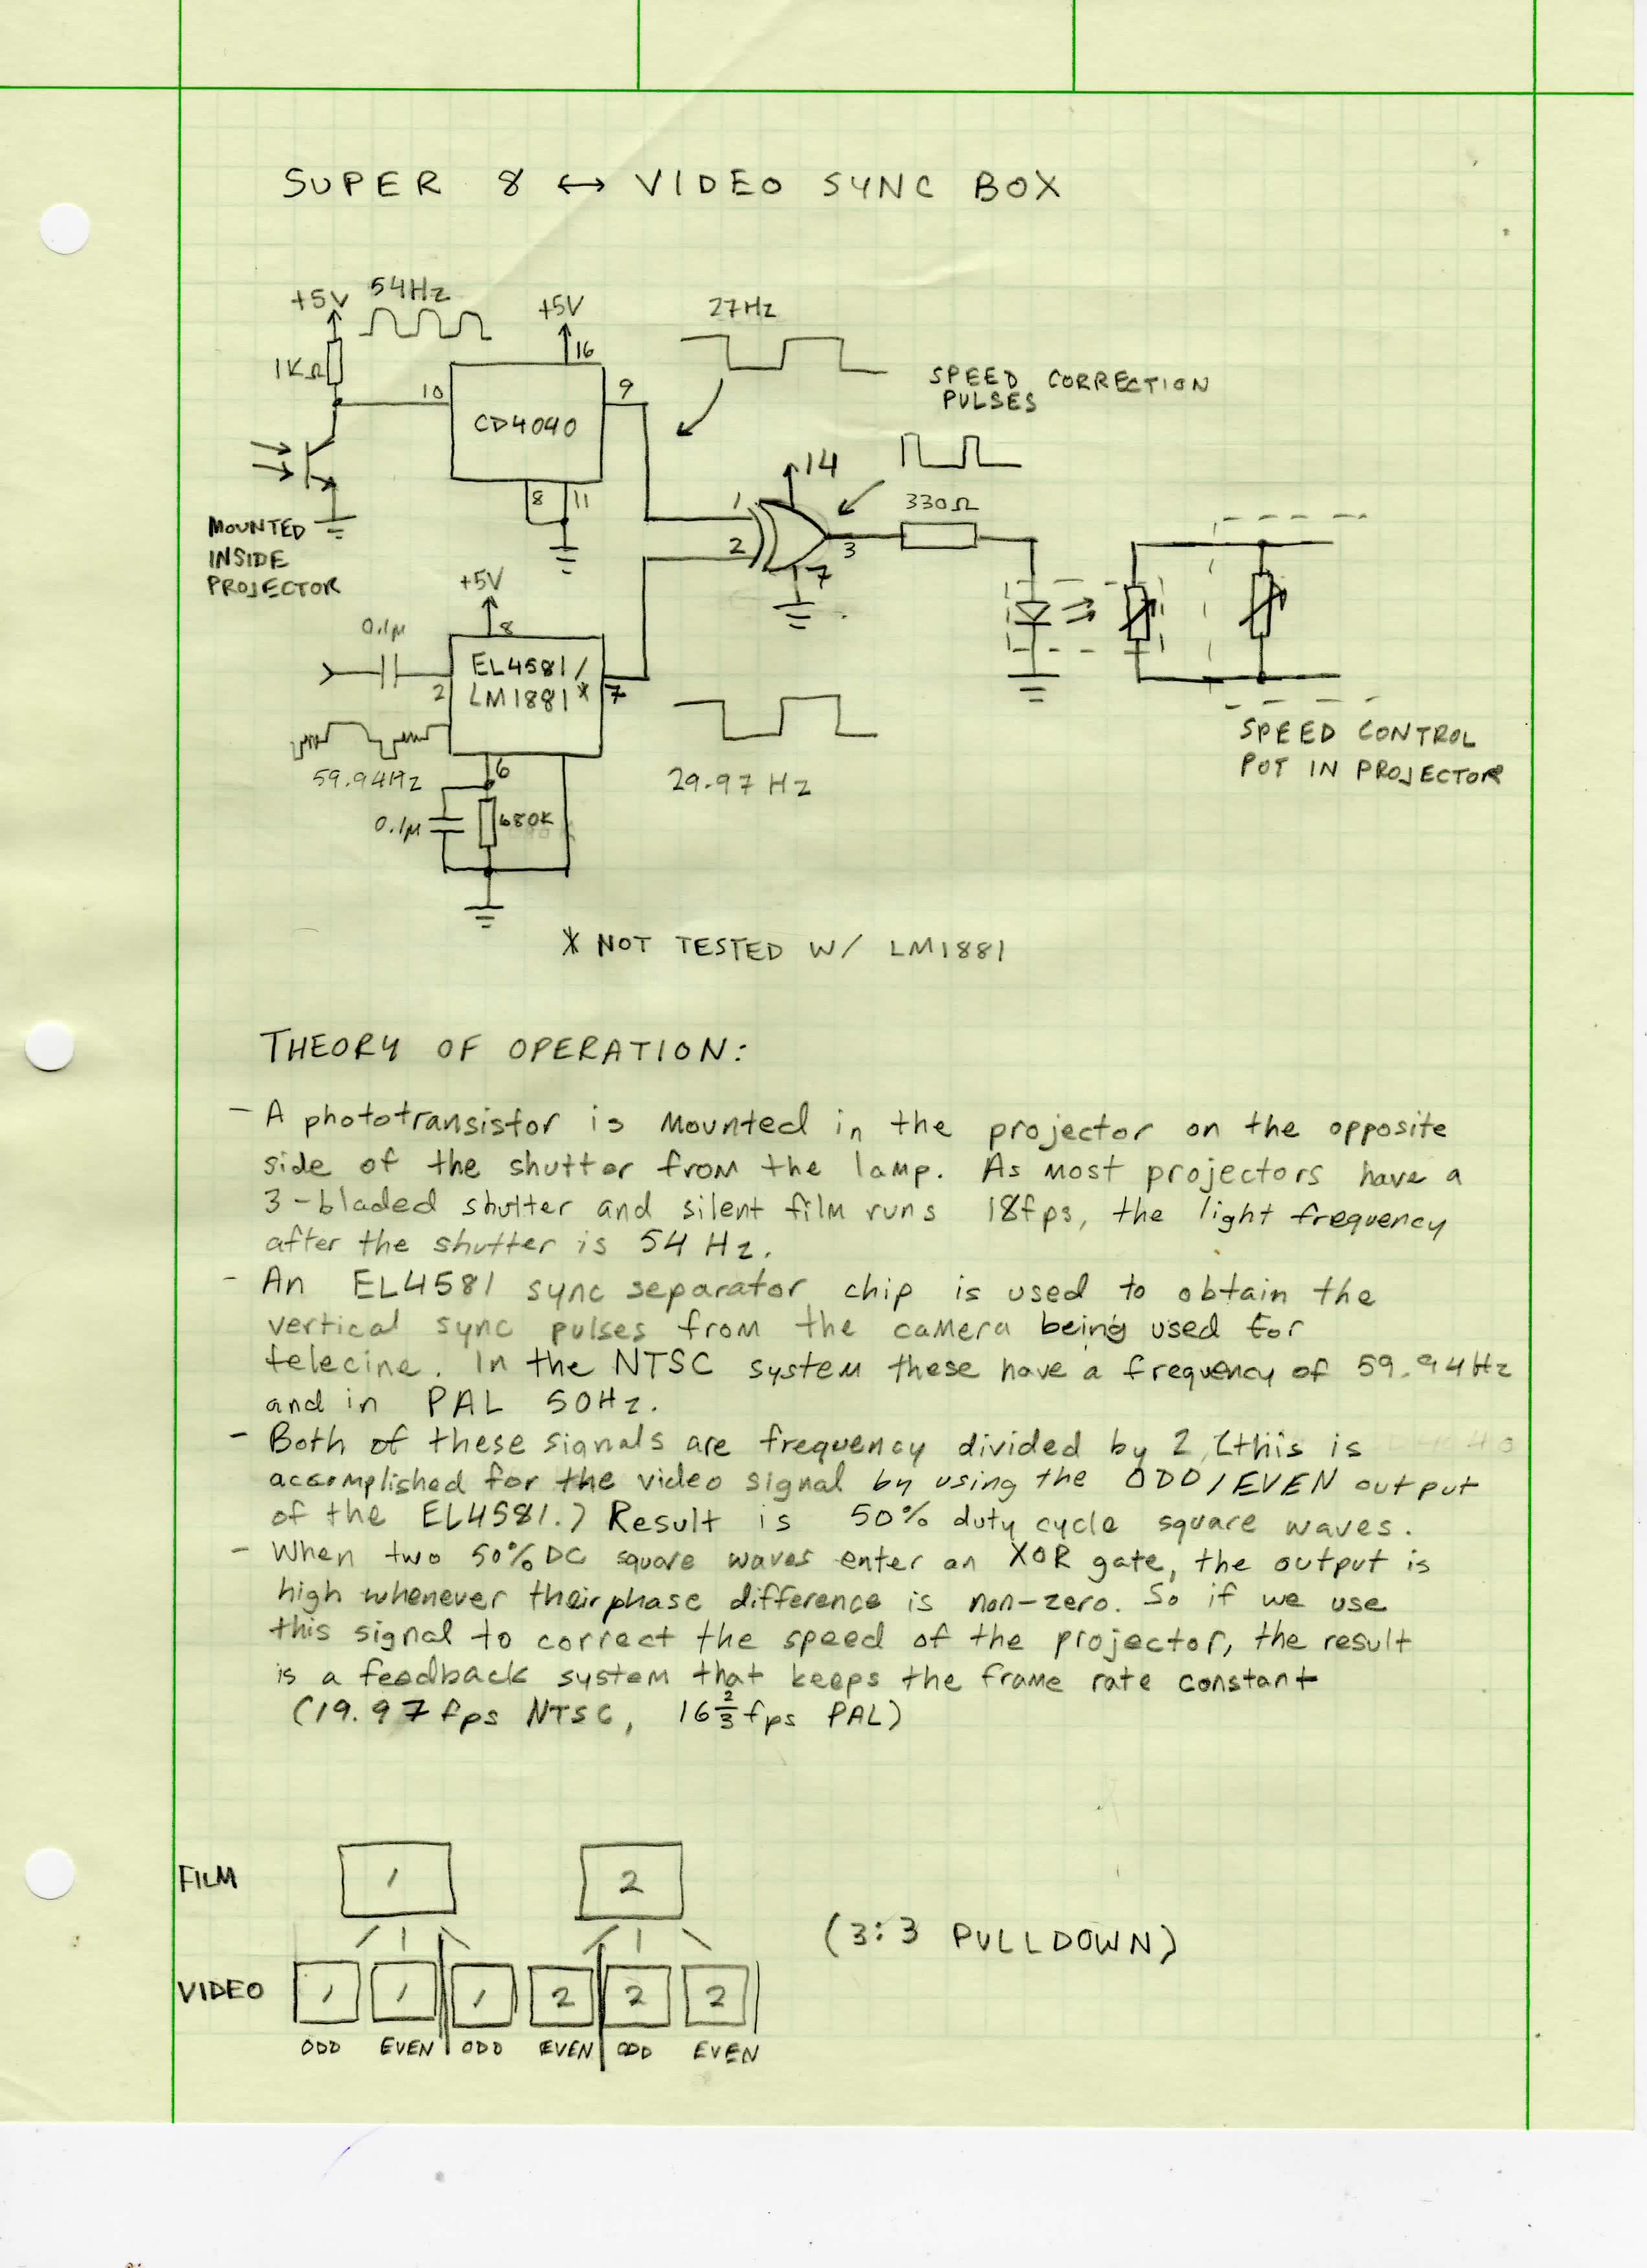 SUPER 8 ↔ VIDEO SYNC BOX
+5V 54Hz
+5V
27Hz
1KΩ
16
10
9
CD4040
SPEED CORRECTION
PULSES
8 11
14
330Ω
1
2
3
7
MOUNTED
INSIDE
PROJECTOR
+5V
8
0.1µ
EL4581/
LM1881*
2
7
59.94Hz
6
29.97 Hz
0.1µ
680K
SPEED CONTROL
POT IN PROJECTOR
* NOT TESTED W/ LM1881
THEORY OF OPERATION:
- A phototransistor is mounted in the projector on the opposite
side of the shutter from the lamp. As most projectors have a
3-bladed shutter and silent film runs 18fps, the light frequency
after the shutter is 54 Hz.
- An EL4581 sync separator chip is used to obtain the
vertical sync pulses from the camera being used for
telecine. In the NTSC system these have a frequency of 59.94Hz
and in PAL 50Hz.
- Both of these signals are frequency divided by 2 (this is
accomplished for the video signal by using the ODD/EVEN output
of the EL4581.) Result is 50% duty cycle square waves.
- When two 50% DC square waves enter an XOR gate, the output is
high whenever their phase difference is non-zero. So if we use
this signal to correct the speed of the projector, the result
is a feedback system that keeps the frame rate constant
(19.97 fps NTSC, 16 2/3 fps PAL)
FILM 1 2
(3:3 PULLDOWN)
VIDEO 1 1 1 2 2 2
ODD EVEN ODD EVEN ODD EVEN